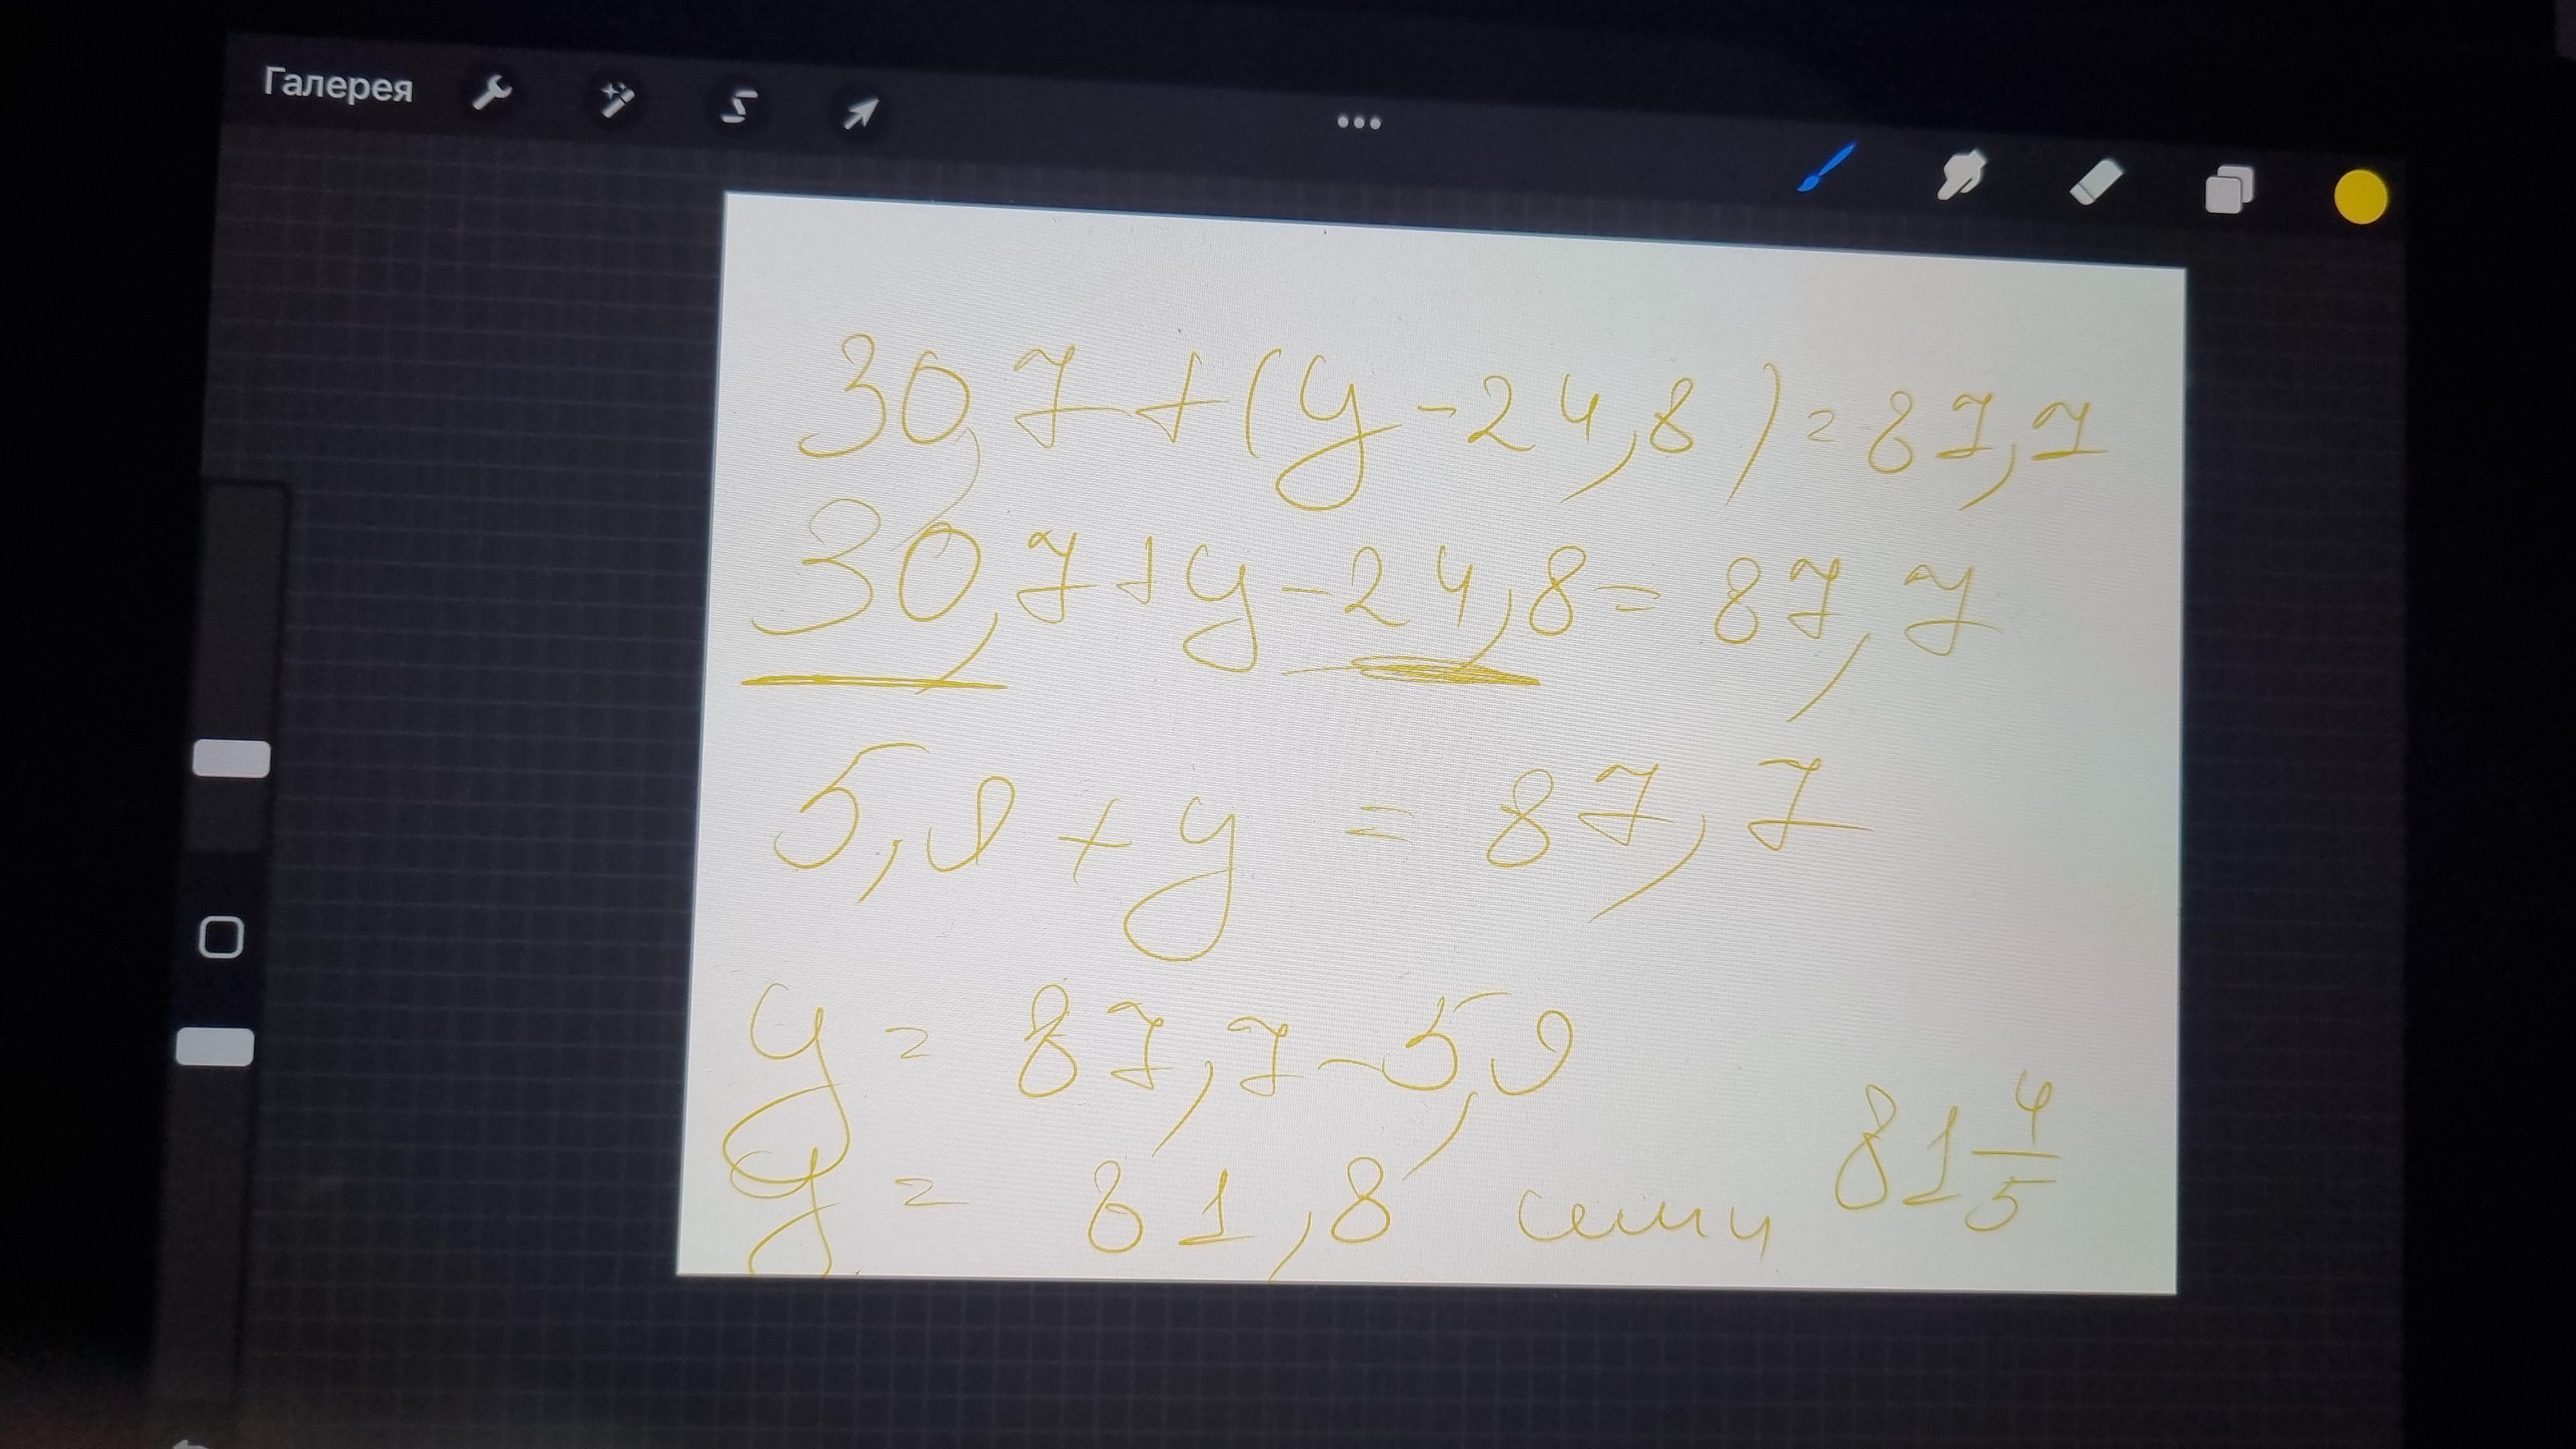 Галерея
30,7+(y-24,8)=87,7
30,7+y-24,8=87,7
5,9+y=87,7
y=87,7-5,9
y=81,8 81 4/5